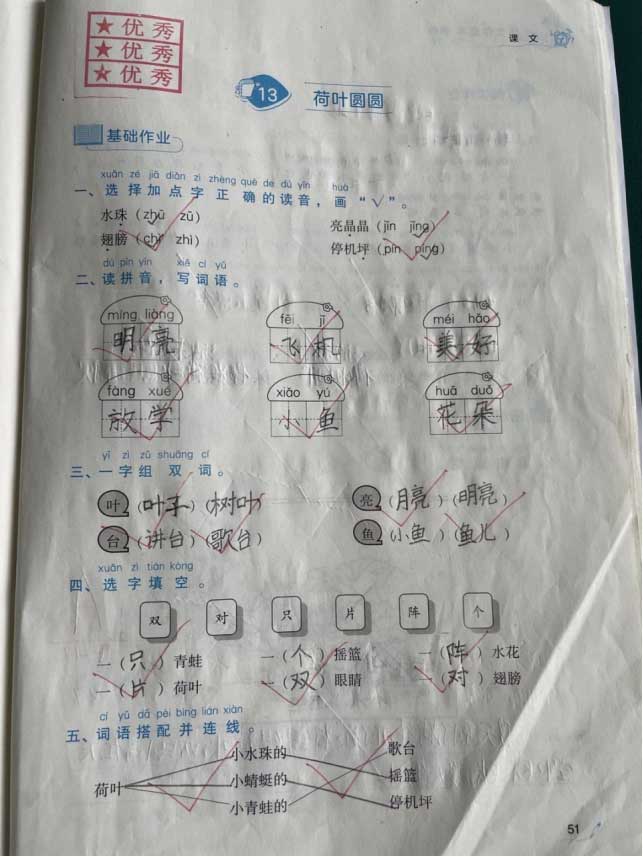 课文
★优秀
★优秀
★优秀
13 荷叶圆圆
基础作业
xuǎn zé jiā diǎn zì zhèng què de dú yīn huà
一、选择加点字正确的读音，画“√”。
水珠（zhū zū） 亮晶晶（jīn jīng）
翅膀（chì zhì） 停机坪（pín píng）
dú pīn yīn xiě cí yǔ
二、读拼音，写词语。
míng liàng fēi jī měi hǎo
明亮 飞机 美好
fàng xué xiǎo yú huā duǒ
放学 小鱼 花朵
yī zì zǔ shuāng cí
三、一字组双词。
叶（叶子）（树叶） 亮（月亮）（明亮）
台（讲台）（歌台） 鱼（小鱼）（鱼儿）
xuǎn zì tián kòng
四、选字填空。
双 对 只 片 阵 个
一（只）青蛙 一（个）摇篮 一（阵）水花
一（片）荷叶 一（双）眼睛 一（对）翅膀
cí yǔ dā pèi bìng lián xiàn
五、词语搭配并连线。
小水珠的 歌台
荷叶 小蜻蜓的 摇篮
小青蛙的 停机坪
51